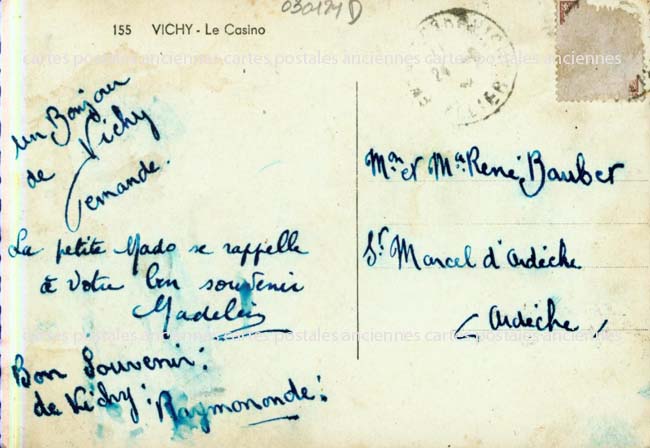 030121D
155 VICHY - Le Casino
cartes postales anciennes cartes postales anciennes cartes postales anciennes
un Bonjour
de Vichy
Fernande.
La petite Mado se rappelle
à votre bon souvenir
Madelein
Bon Souvenir!
de Vichy! Raymononde!
ALLIER
Mr et Me René Bauber
St Marcel d'Ardèche
(Ardèche)
cartes postales anciennes cartes postales anciennes cartes postales anciennes